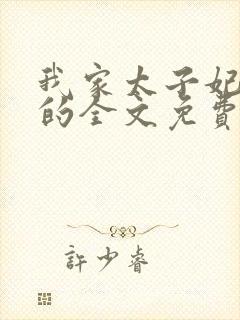 我家太子妃
的全文免費
許少睿